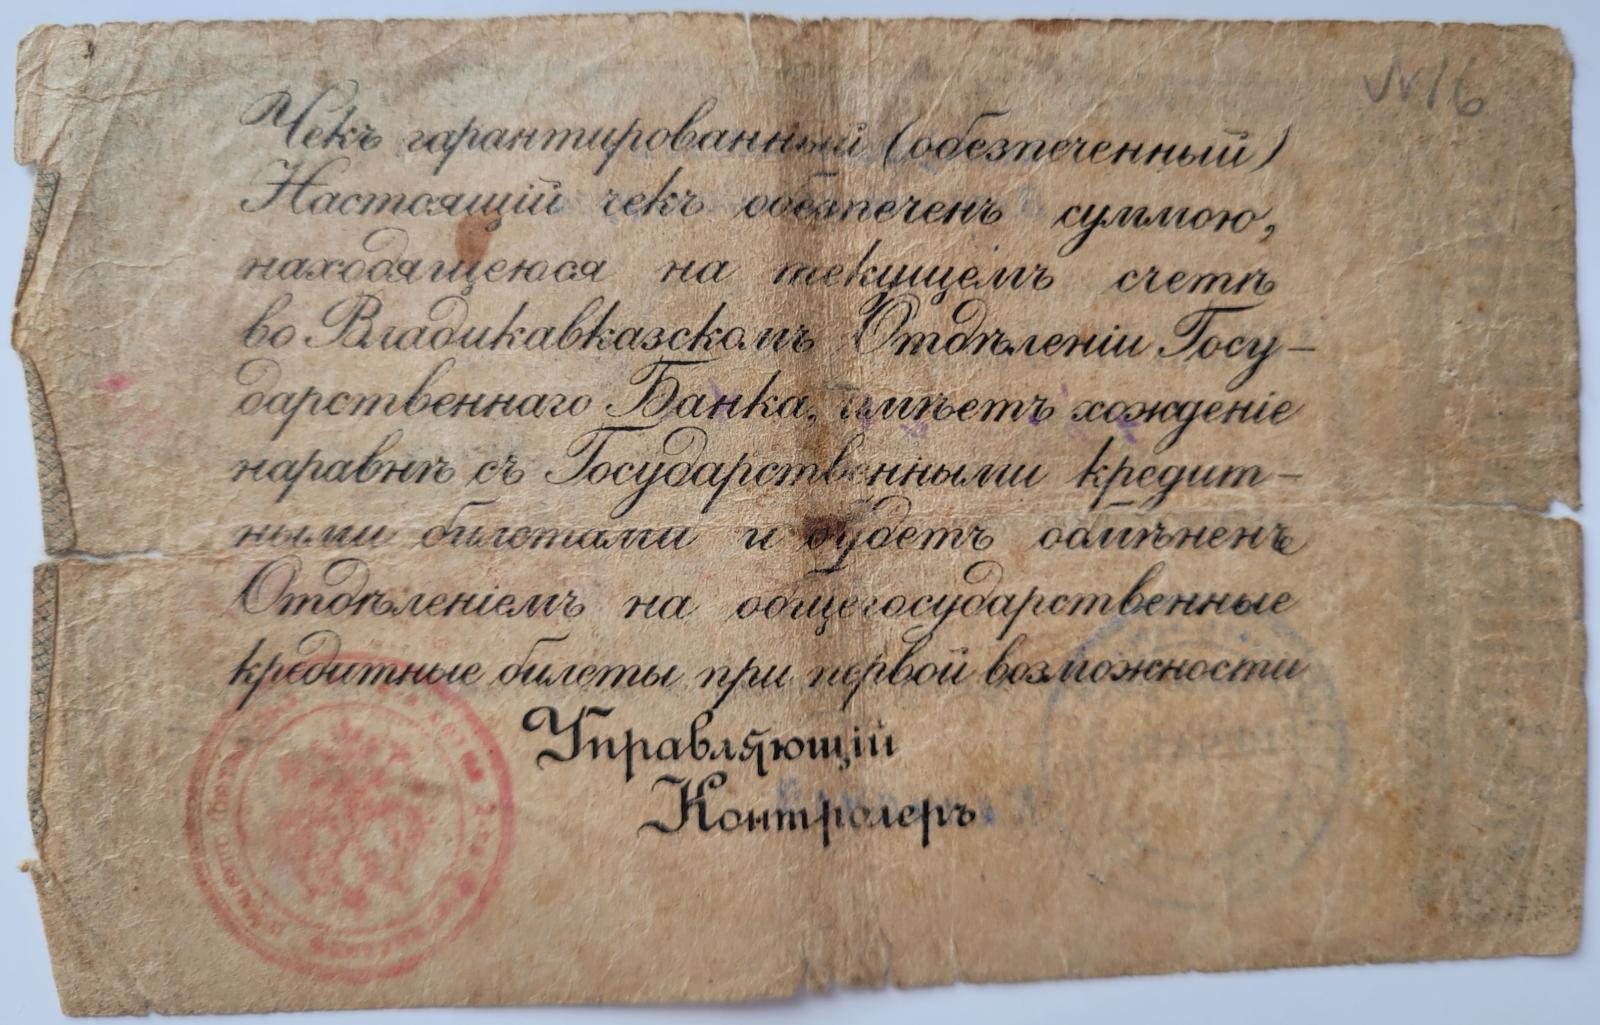 №16
Чекъ гарантированный (обезпеченный)
Настоящій чекъ обезпеченъ суммою,
находящеюся на текущемъ счетѣ
во Владикавказскомъ Отдѣленіи Госу-
дарственнаго Банка, имѣетъ хожденіе
наравнѣ съ Государственными кредит-
ными билетами и будетъ обмѣненъ
Отдѣленіемъ на общегосударственные
кредитные билеты при первой возможности
Управляющій
Контролеръ